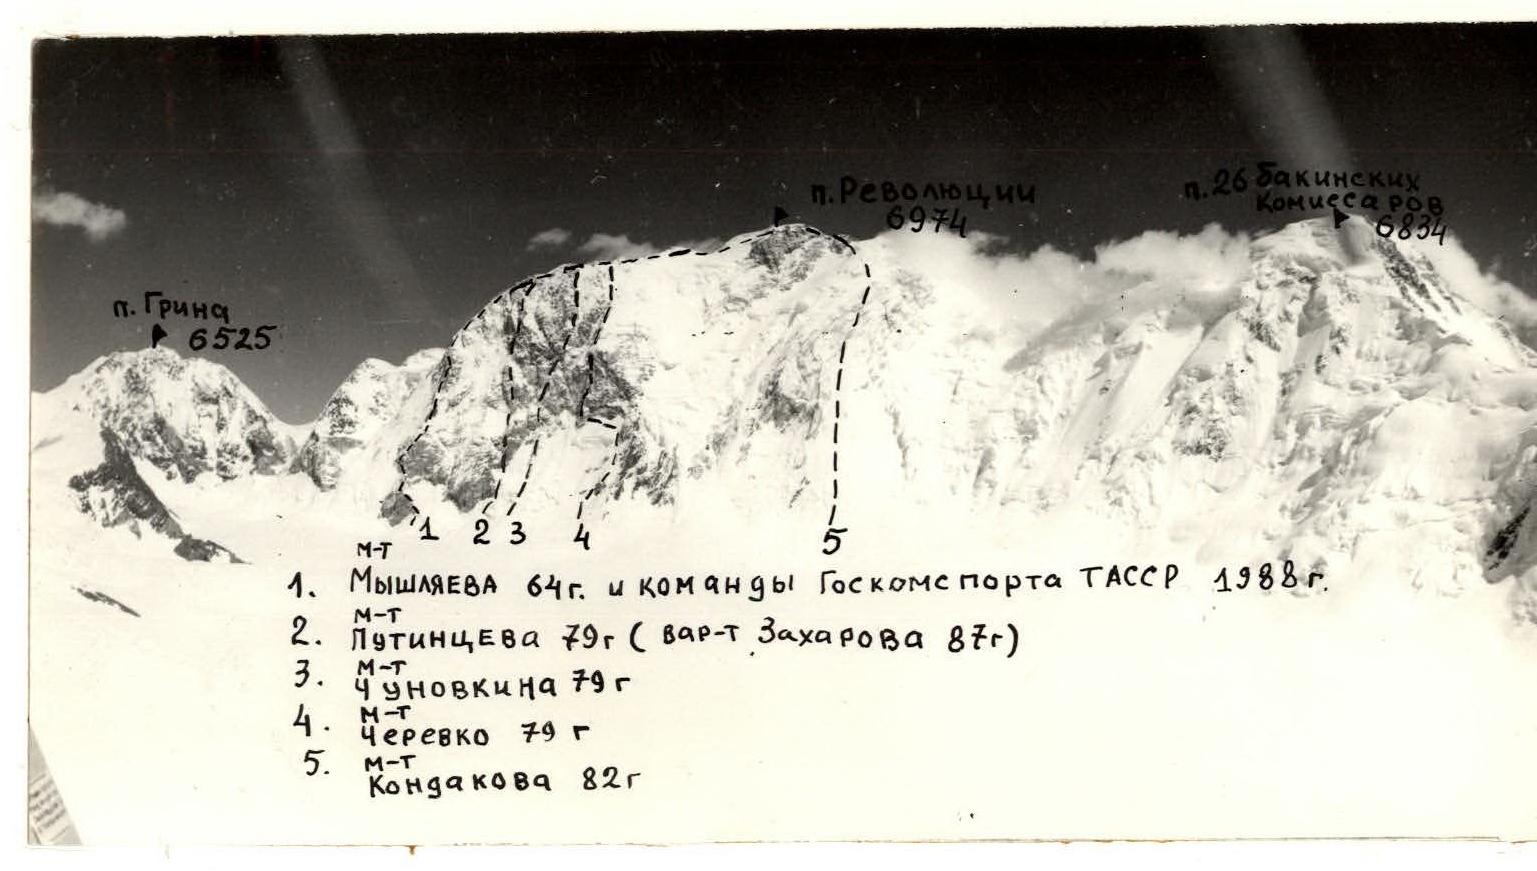 п. 26 Бакинских
Комиссаров
6834
п. Революции
6974
п. Грина
6525
1 2 3 4 5
м-т
1. Мышляева 64г. и команды Госкомспорта ТАССР 1988г.
м-т
2. Путинцева 79г ( вар-т Захарова 87г)
м-т
3. Чуновкина 79г
м-т
4. Черевко 79 г
м-т
5. Кондакова 82г